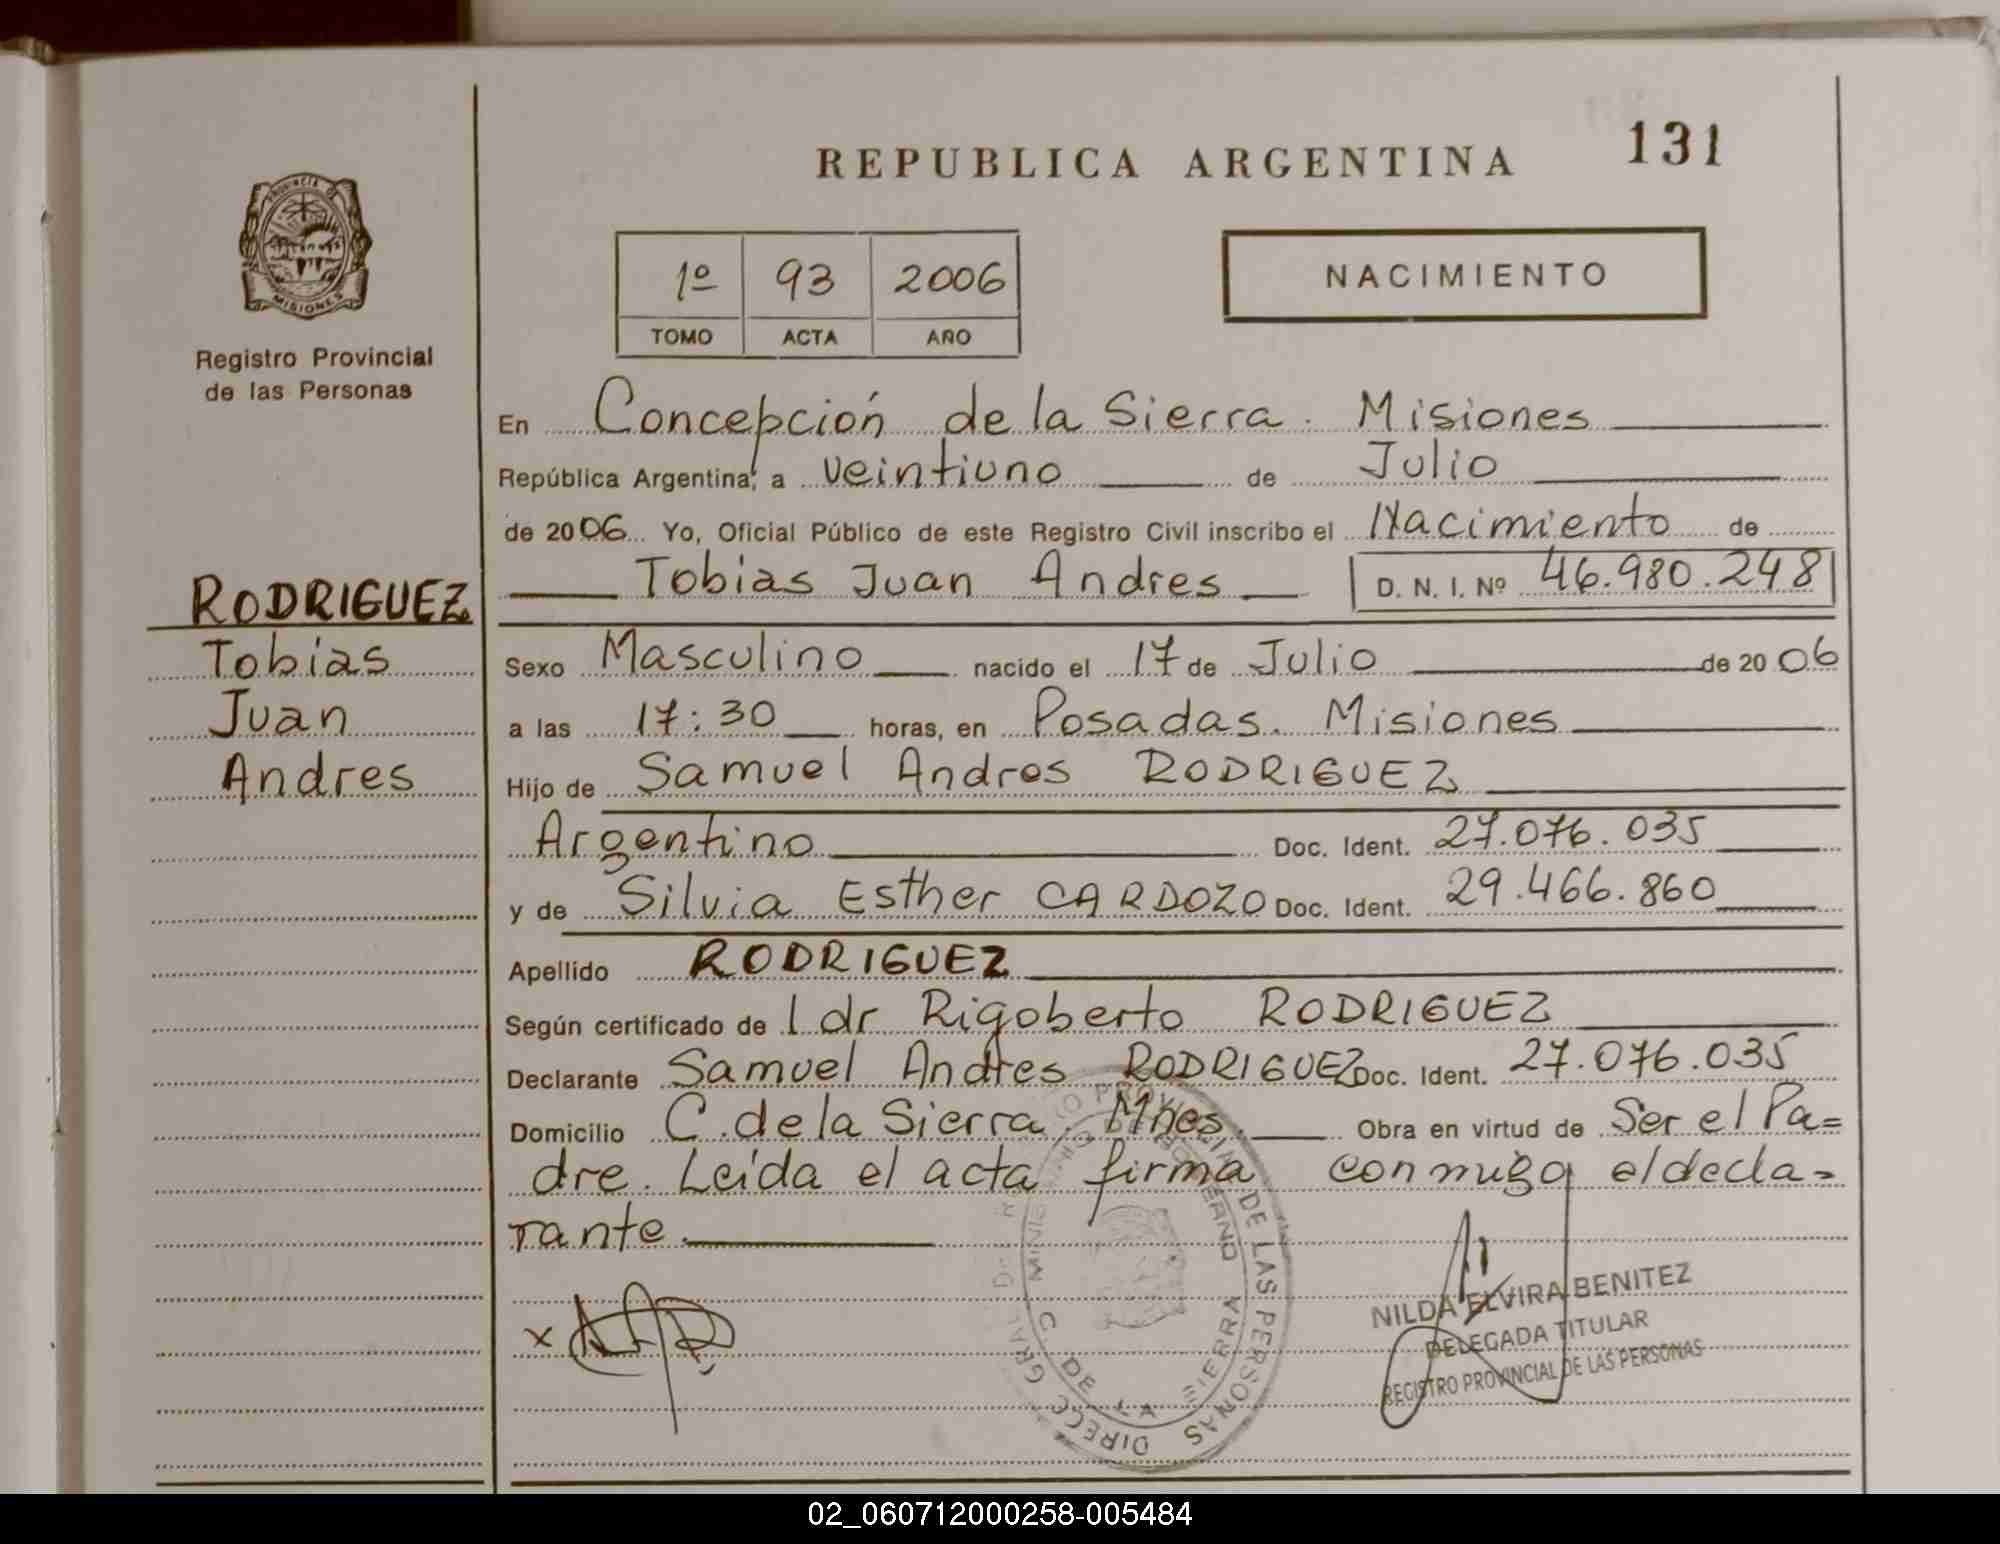 REPUBLICA ARGENTINA
131
PROVINCIA DE
MISIONES
Registro Provincial
de las Personas
1º 93 2006
TOMO ACTA AÑO
NACIMIENTO
En Concepción de la Sierra. Misiones
República Argentina, a veintiuno de Julio
de 2006 Yo, Oficial Público de este Registro Civil inscribo el Nacimiento de
Tobias Juan Andres D. N. I. Nº 46.980.248
RODRIGUEZ
Tobias
Juan
Andres
Sexo Masculino nacido el 17 de Julio de 2006
a las 17:30 horas, en Posadas. Misiones
Hijo de Samuel Andres RODRIGUEZ
Argentino Doc. Ident. 27.076.035
y de Silvia Esther CARDOZO Doc. Ident. 29.466.860
Apellido RODRIGUEZ
Según certificado de l dr Rigoberto RODRIGUEZ
Declarante Samuel Andres RODRIGUEZ Doc. Ident. 27.076.035
Domicilio C. de la Sierra. Mnes. Obra en virtud de Ser el Pa=
dre. Leida el acta firma conmigo el decla=
rante.
NILDA ELVIRA BENITEZ
DELEGADA TITULAR
REGISTRO PROVINCIAL DE LAS PERSONAS
DE LAS PERSONAS
C. DE LA SIERRA
02_060712000258-005484